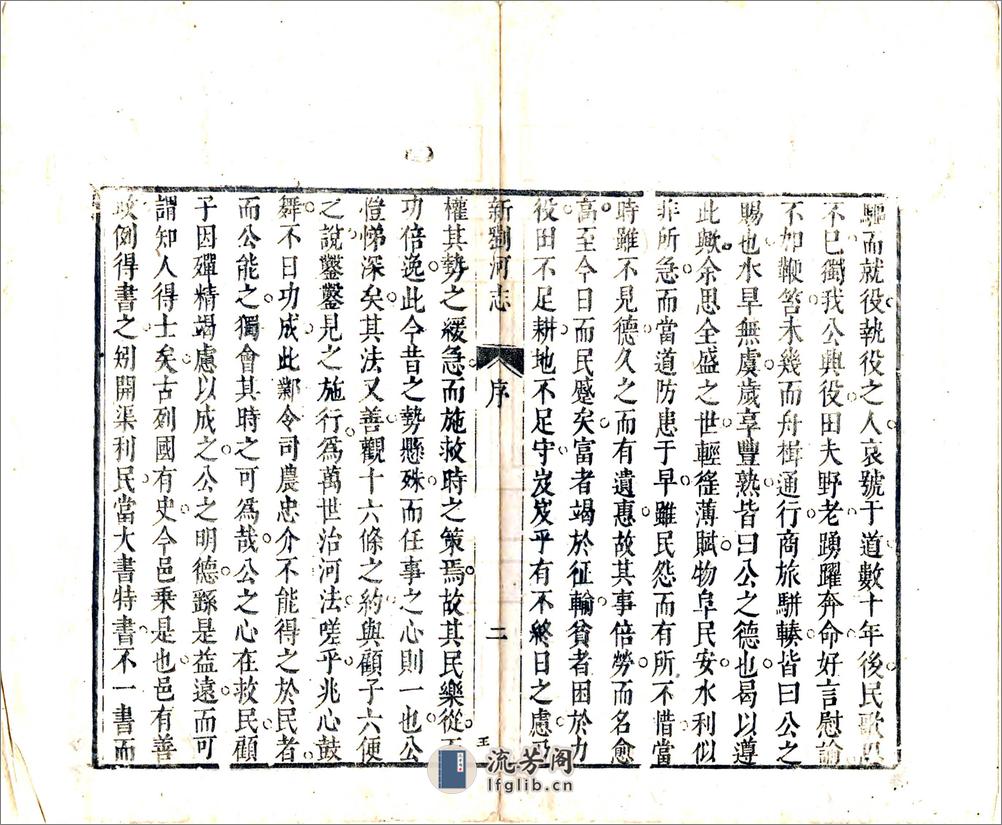 驅而就役執役之人哀號于道數十年後民歌思
不已獨我公興役田夫野老踴躍奔命好言慰諭
不加鞭笞未幾而舟楫通行商旅駢輳皆曰公之
賜也水旱無虞歲享豐熟皆曰公之德也曷以遵
此歟余思全盛之世輕徭薄賦物阜民安水利似
非所急而當道防患于早雖民怨而有所不惜當
時雖不見德久之而有遺惠故其事倍勞而名愈
高至今日而民蹙矣富者竭於征輸貧者困於力
役田不足耕地不足守岌岌乎有不終日之慮乃
新劉河志
序
二
王
權其勢之緩急而施救時之策焉故其民樂從而
功倍逸此今昔之勢懸殊而任事之心則一也公
愷悌深矣其法又善觀十六條之約與顧子六便
之說鑿鑿見之施行爲萬世治河法嗟乎兆心鼓
舞不日功成此鄴令司農忠介不能得之於民者
而公能之獨會其時之可爲哉公之心在救民顧
子因殫精竭慮以成之公之明德繇是益遠而可
謂知人得士矣古列國有史今邑乘是也邑有善
政例得書之矧開渠利民當大書特書不一書而
流芳阁
lfglib.cn